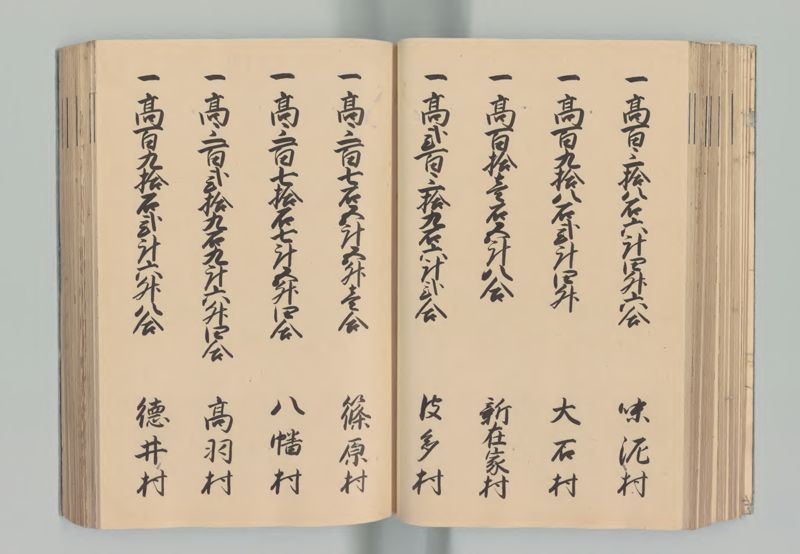 一高百三拾八石六斗四升六合 味泥村
一高百九拾八石弐斗四升 大石村
一高百拾壱石五斗八合 新在家村
一高弐百三拾九石六斗弐合 友多村
一高三百七石五斗五升壱合 篠原村
一高三百七拾石七斗五升四合 八幡村
一高三百弐拾九石九斗六升四合 高羽村
一高百九拾石弐斗六升八合 徳井村